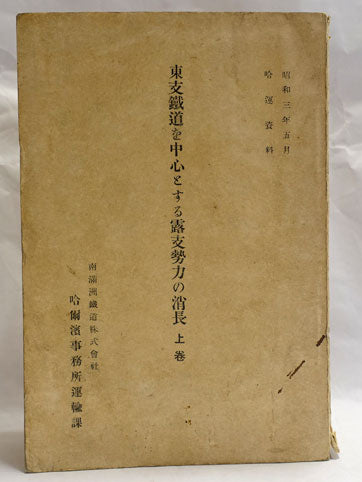 昭和三年五月
哈運資料
東支鐵道を中心とする露支勢力の消長 上卷
南滿洲鐵道株式會社
哈爾濱事務所運輸課